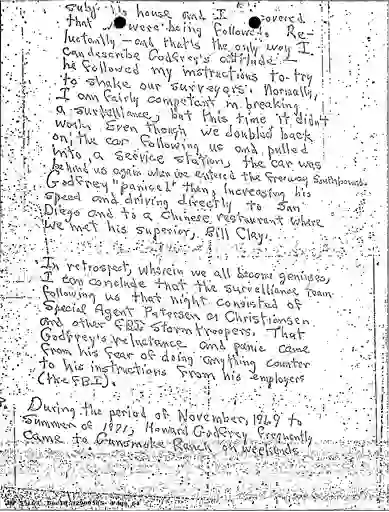 his house and I covered
that were being followed. Re-
luctantly - and that's the only way I
can describe Godfrey's attitude -
he followed my instructions to try
to shake our surveyors. Normally,
I am fairly competent in breaking
a surveillance, but this time it didn't
work. Even though we doubled back
on the car following us and pulled
into a service station, the car was
behind us again when we entered the freeway southbound.
Godfrey "paniced" then, increasing his
speed and driving directly to San
Diego and to a Chinese restaurant where
we met his superior, Bill Clay.
In retrospect, wherein we all become geniuses,
I can conclude that the surveillance team
following us that night consisted of
Special Agent Patersen or Christiansen
and other FBI stormtroopers. That
Godfrey's reluctance and panic came
from his fear of doing anything counter
to his instructions from his employers
(the FBI).
During the period of November, 1969 to
Summer of 1971, Howard Godfrey frequently
came to Gunsmoke Ranch on weekends